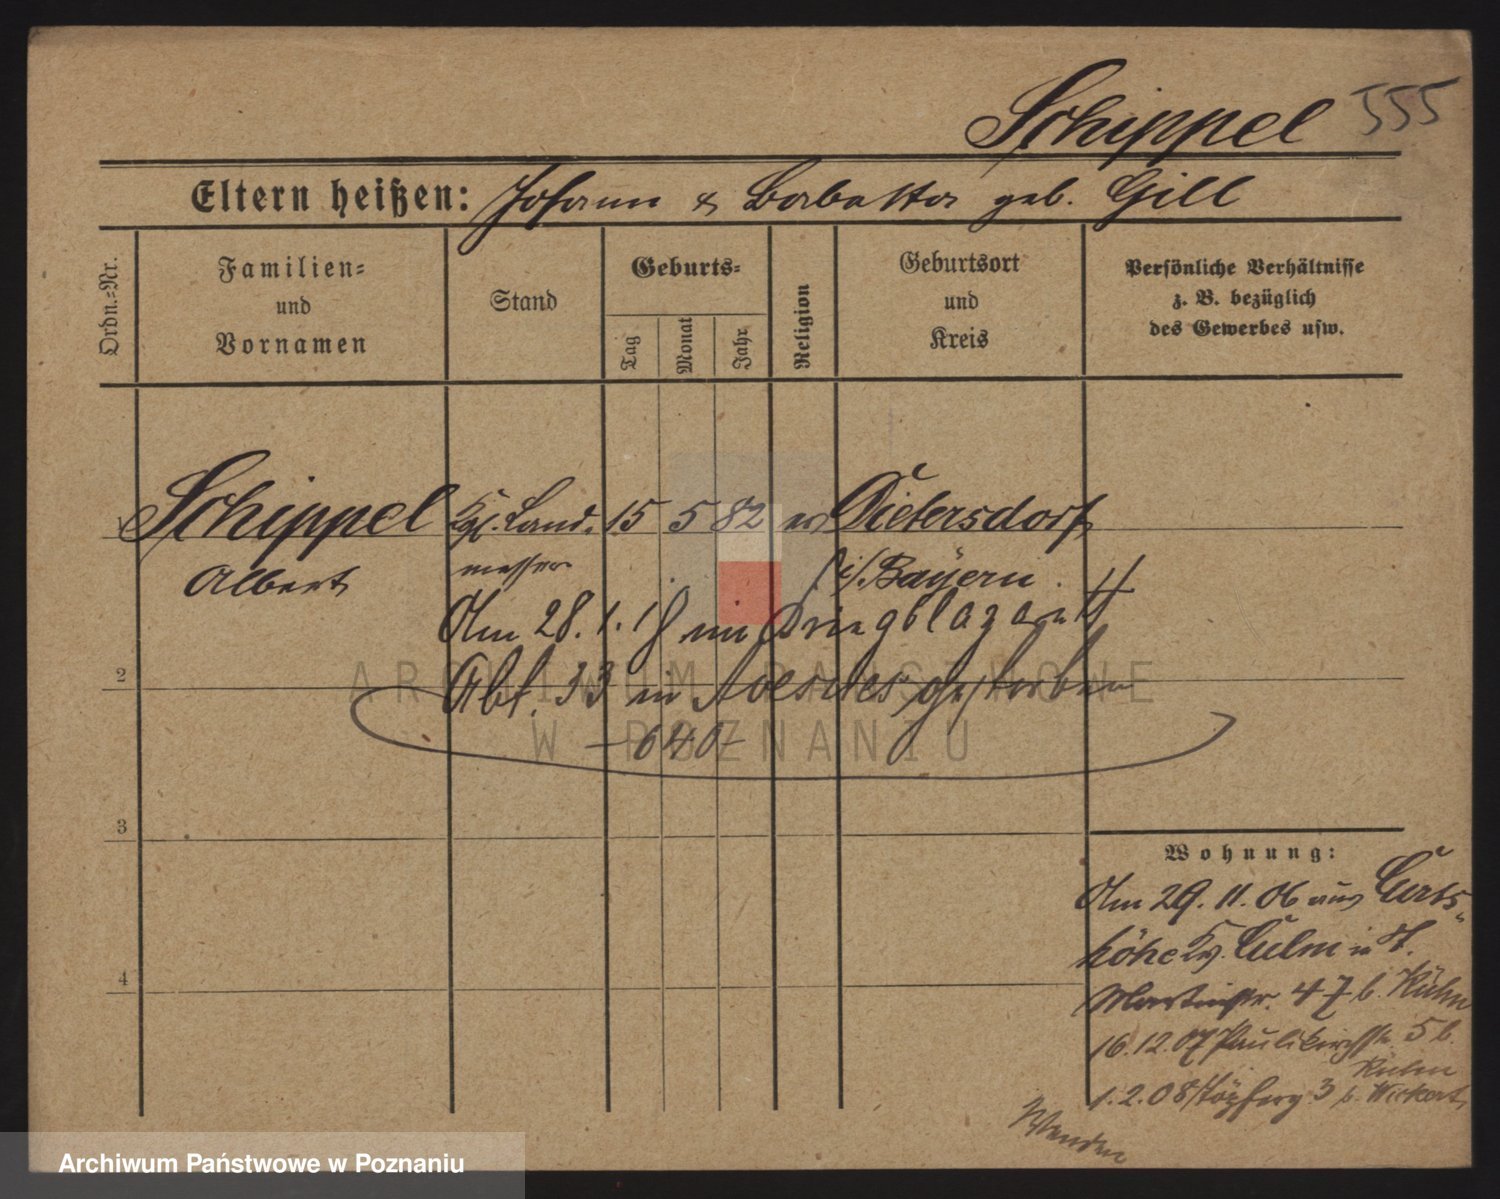 Schippel 555
Eltern heißen: Johann & Babetta geb. Gill
Ordn.-Nr.
Familien-
und
Vornamen
Stand
Geburts-
Tag
Monat
Jahr
Religion
Geburtsort
und
Kreis
Persönliche Verhältnisse
z. B. bezüglich
des Gewerbes usw.
1 Schippel Kgl. Land- 15 5 82 ev Dietersdorf
Albert messer i/Bayern.
Am 28.1.18 im Kriegslazarett
2 Abt. 33 in gestorben
ARCHIWUM PAŃSTWOWE
W POZNANIU
3
4
Wohnung:
Am 29.11.06 aus Curts-
höhe Kr. Culm in St.
Martinstr. 47 b. Kühn
16.12.07 Paulikirchstr. 5 b.
Kühn
1.2.08 3 b. Wickert
Wenden
Archiwum Państwowe w Poznaniu